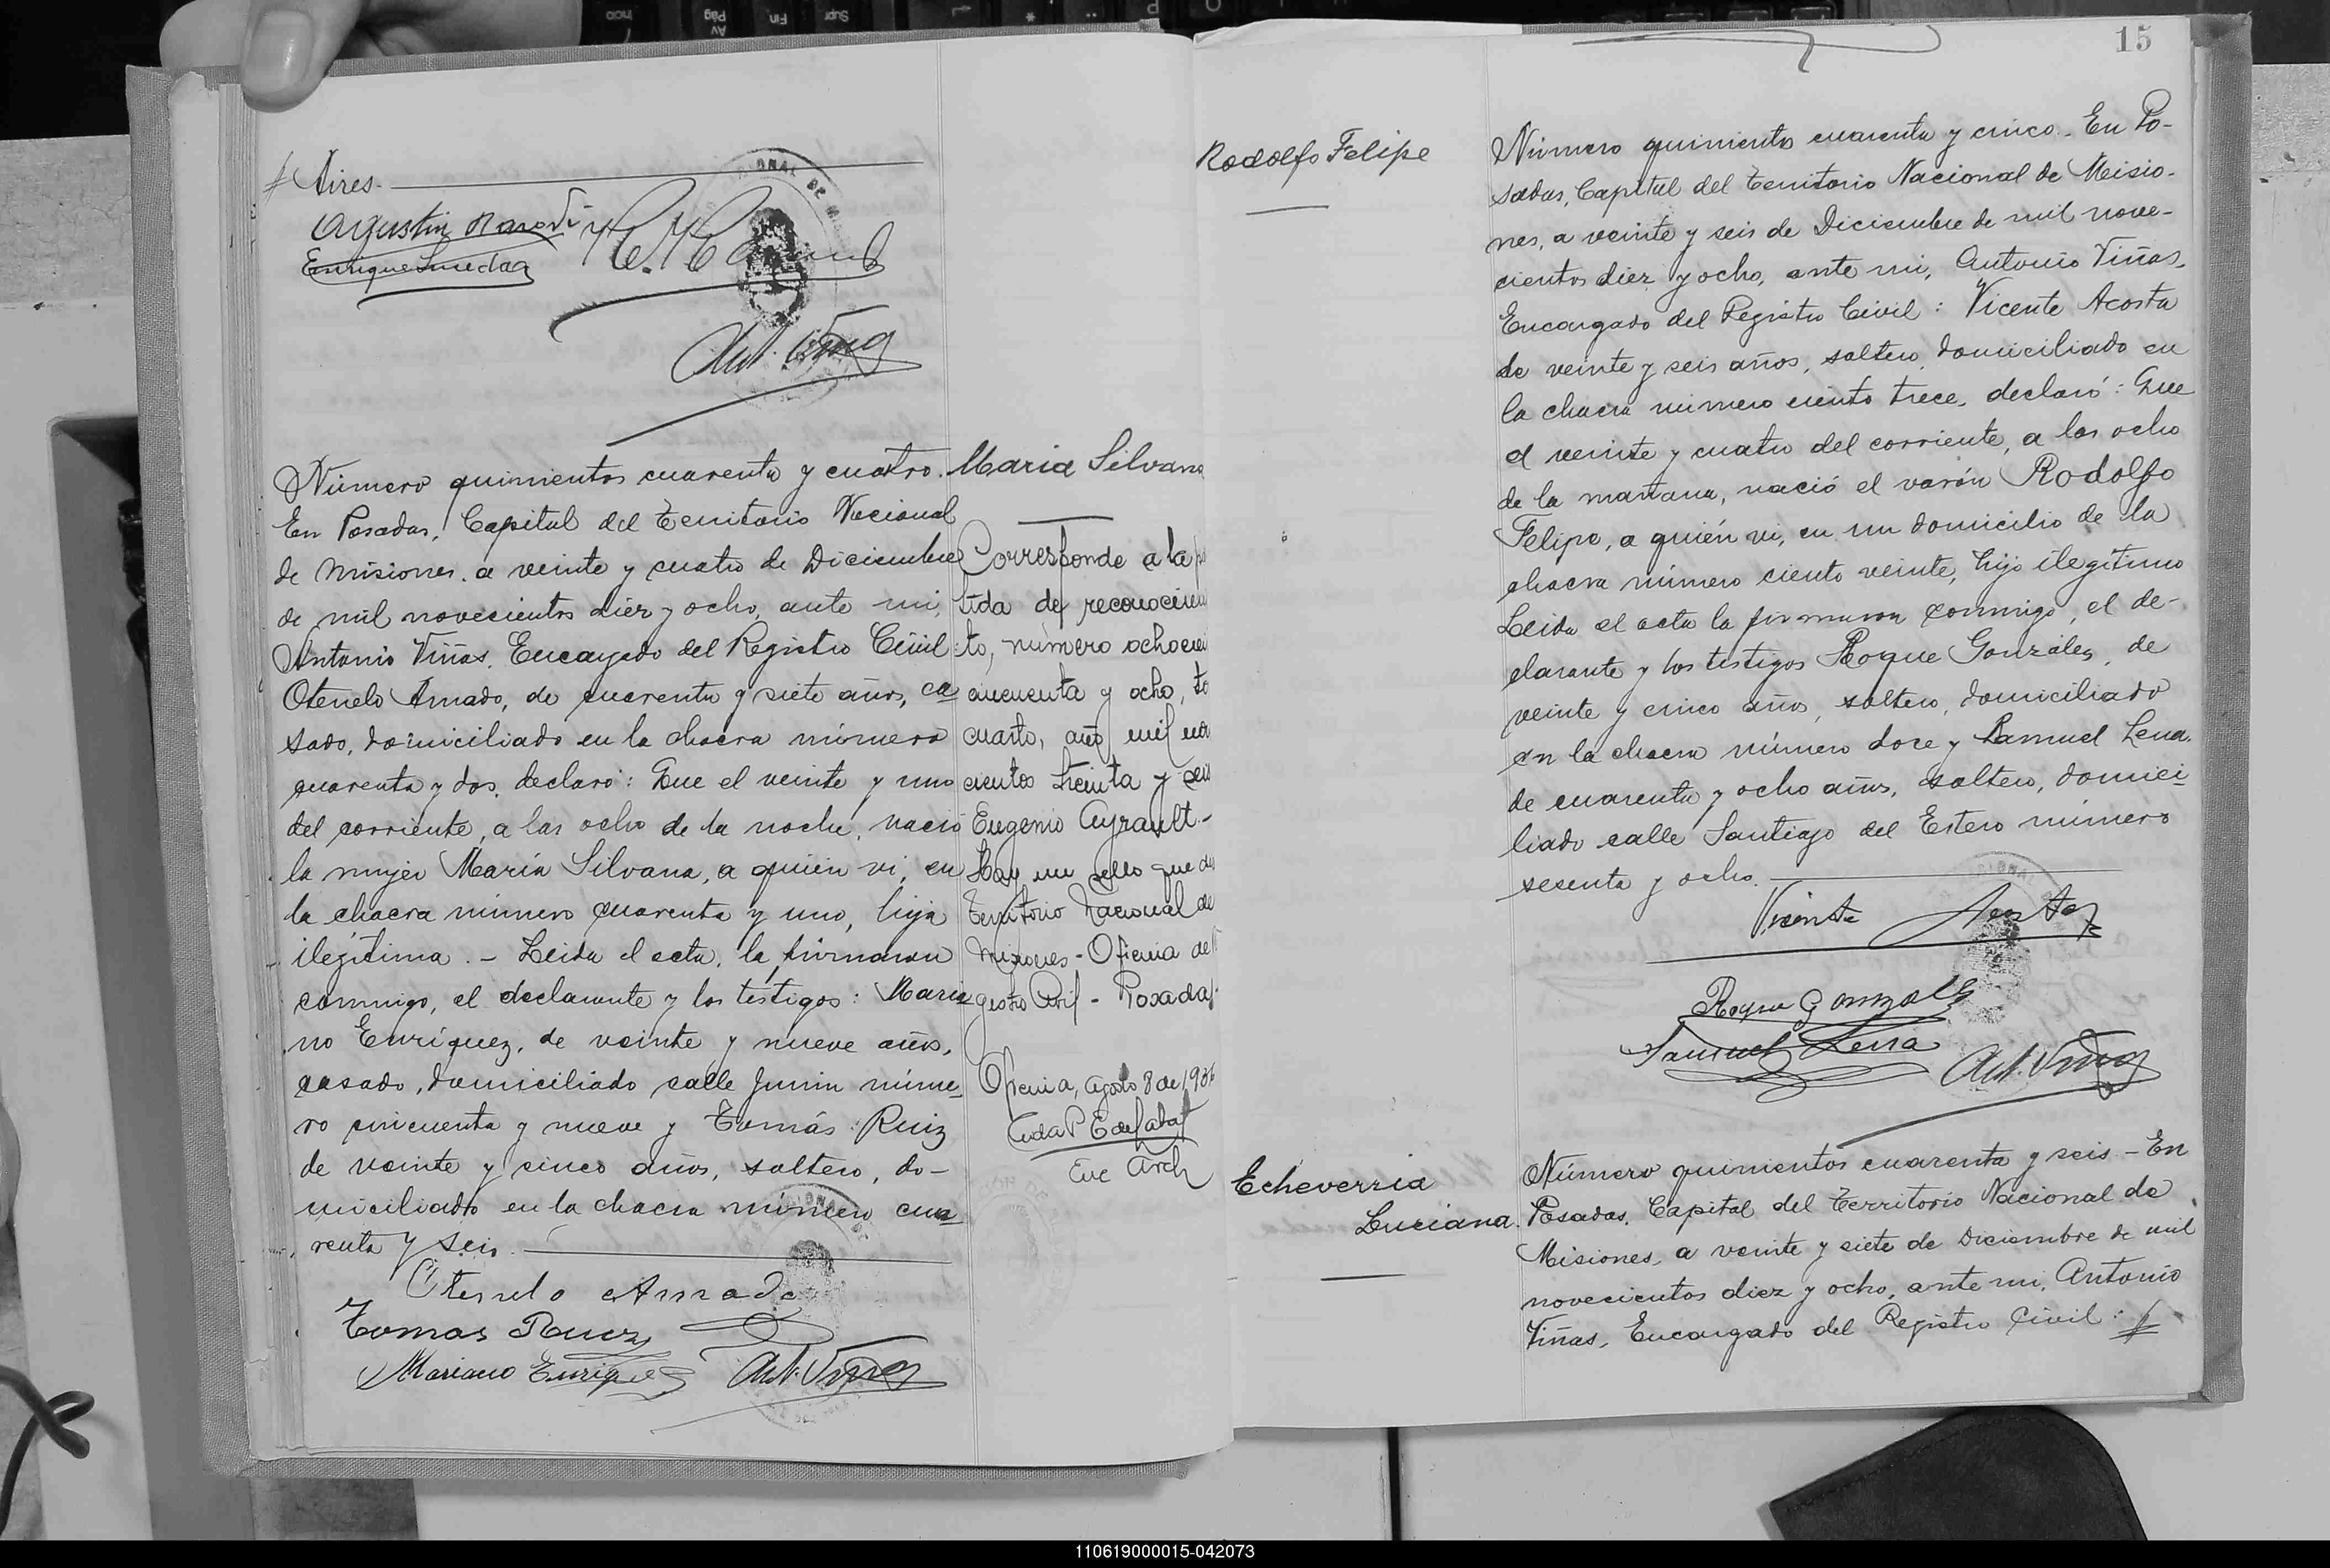 Aires.
Agustin
Enrique
Ant. Viñas
Número quinientos cuarenta y cuatro.
En Posadas, Capital del Territorio Nacional
de Misiones, a veinte y cuatro de Diciembre
de mil novecientos diez y ocho, ante mi,
Antonio Viñas, Encargado del Registro Civil:
Otenelo Amado, de cuarenta y siete años, ca
sado, domiciliado en la chacra número
cuarenta y dos, declaró: Que el veinte y uno
del corriente, a las ocho de la noche, nació
la mujer María Silvana, a quién vi, en
la chacra número cuarenta y uno, hija
ilegítima. - Leida el acta, la firmaron
conmigo, el declarante y los testigos: Maria
no Enríquez, de veinte y nueve años,
casado, domiciliado calle Junin núme
ro cincuenta y nueve y Tomás Ruiz
de veinte y cinco años, soltero, do-
miciliado en la chacra número cua
renta y seis.
Otenelo Amado
Tomas Ruiz
Mariano Enriquez Ant. Viñas
Maria Silvana
Corresponde a la
tida de reconocimi
to, número ochocie
cincuenta y ocho, to
cuarto, año mil no
cientos treinta y seis
Eugenio Ayrault -
Hay un sello que di
Territorio Nacional de
Misiones - Oficina del
gistro Civil - Posadas.
Oficina, Agosto 8 de 1936
Enc Arch
15
Rodolfo Felipe
Número quinientos cuarenta y cinco. En Po-
sadas, Capital del Territorio Nacional de Misio-
nes, a veinte y seis de Diciembre de mil nove-
cientos diez y ocho, ante mi, Antonio Viñas,
Encargado del Registro Civil: Vicente Acosta
de veinte y seis años, soltero, domiciliado en
la chacra número ciento trece, declaró: Que
el veinte y cuatro del corriente, a las ocho
de la mañana, nació el varón Rodolfo
Felipe, a quién vi, en un domicilio de la
chacra número ciento veinte, hijo ilegítimo
Leida el acta la firmaron conmigo, el de-
clarante y los testigos Roque Gonzáles, de
veinte y cinco años, soltero, domiciliado
en la chacra número doce y Samuel Lena.
de cuarenta y ocho años, soltero, domici
liado calle Santiago del Estero número
sesenta y ocho.
Vicente Acosta
Roque Gonzales
Samuel Lena
Ant. Viñas
Echeverria
Luciana.
Número quinientos cuarenta y seis - En
Posadas, Capital del Territorio Nacional de
Misiones, a veinte y siete de Diciembre de mil
novecientos diez y ocho, ante mi, Antonio
Viñas, Encargado del Registro Civil:
110619000015-042073